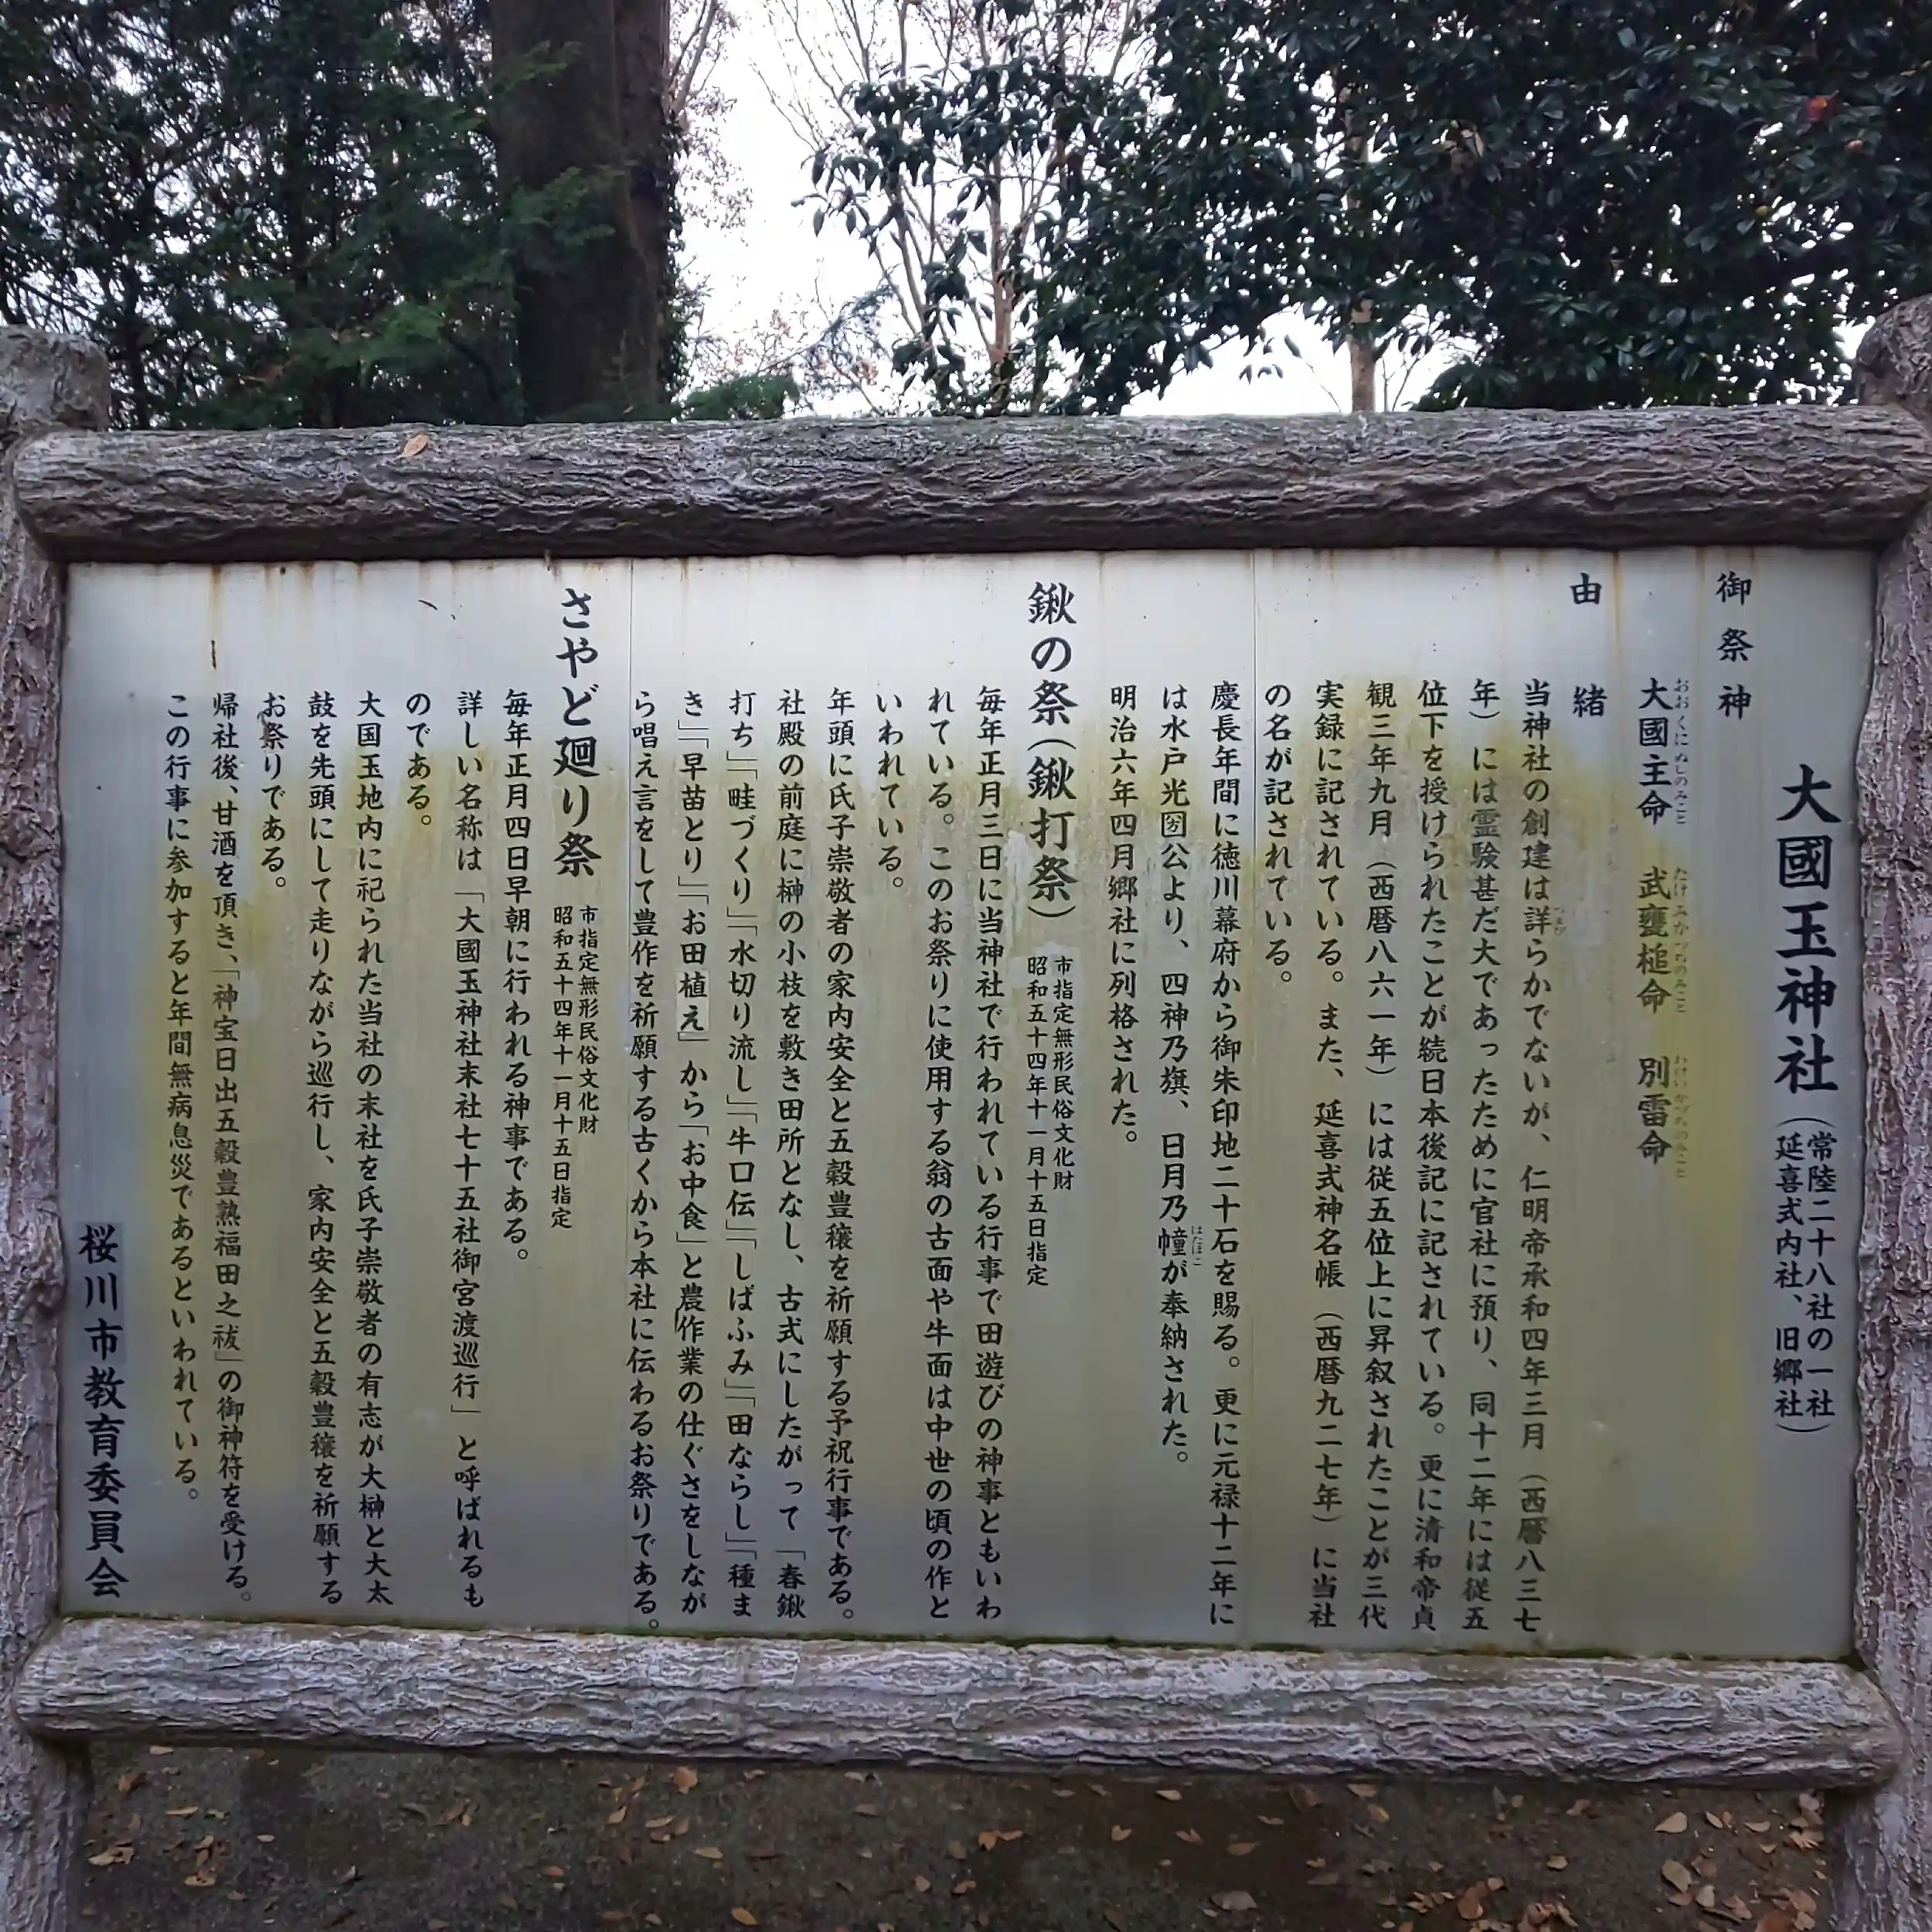 大國玉神社（常陸二十八社の一社
延喜式内社、旧郷社）
御祭神
大國主命　武甕槌命　別雷命
おおくにぬしのみこと　たけみかづちのみこと　わけいかづちのみこと
由緒
当神社の創建は詳らかでないが、仁明帝承和四年三月（西暦八三七
つまび
年）には霊験甚だ大であったために官社に預り、同十二年には従五
位下を授けられたことが続日本後記に記されている。更に清和帝貞
観三年九月（西暦八六一年）には従五位上に昇叙されたことが三代
実録に記されている。また、延喜式神名帳（西暦九二七年）に当社
の名が記されている。
慶長年間に徳川幕府から御朱印地二十石を賜る。更に元禄十二年に
は水戸光圀公より、四神乃旗、日月乃幢が奉納された。
はたほこ
明治六年四月郷社に列格された。
鍬の祭（鍬打祭）
市指定無形民俗文化財
昭和五十四年十一月十五日指定
毎年正月三日に当神社で行われている行事で田遊びの神事ともいわ
れている。このお祭りに使用する翁の古面や牛面は中世の頃の作と
いわれている。
年頭に氏子崇敬者の家内安全と五穀豊穣を祈願する予祝行事である。
社殿の前庭に榊の小枝を敷き田所となし、古式にしたがって「春鍬
打ち」「畦づくり」「水切り流し」「牛口伝」「しばふみ」「田ならし」「種ま
き」「早苗とり」「お田植え」から「お中食」と農作業の仕ぐさをしなが
ら唱え言をして豊作を祈願する古くから本社に伝わるお祭りである。
さやど廻り祭
市指定無形民俗文化財
昭和五十四年十一月十五日指定
毎年正月四日早朝に行われる神事である。
詳しい名称は「大國玉神社末社七十五社御宮渡巡行」と呼ばれるも
のである。
大国玉地内に祀られた当社の末社を氏子崇敬者の有志が大榊と大太
鼓を先頭にして走りながら巡行し、家内安全と五穀豊穣を祈願する
お祭りである。
帰社後、甘酒を頂き、「神宝日出五穀豊熟福田之祓」の御神符を受ける。
この行事に参加すると年間無病息災であるといわれている。
桜川市教育委員会